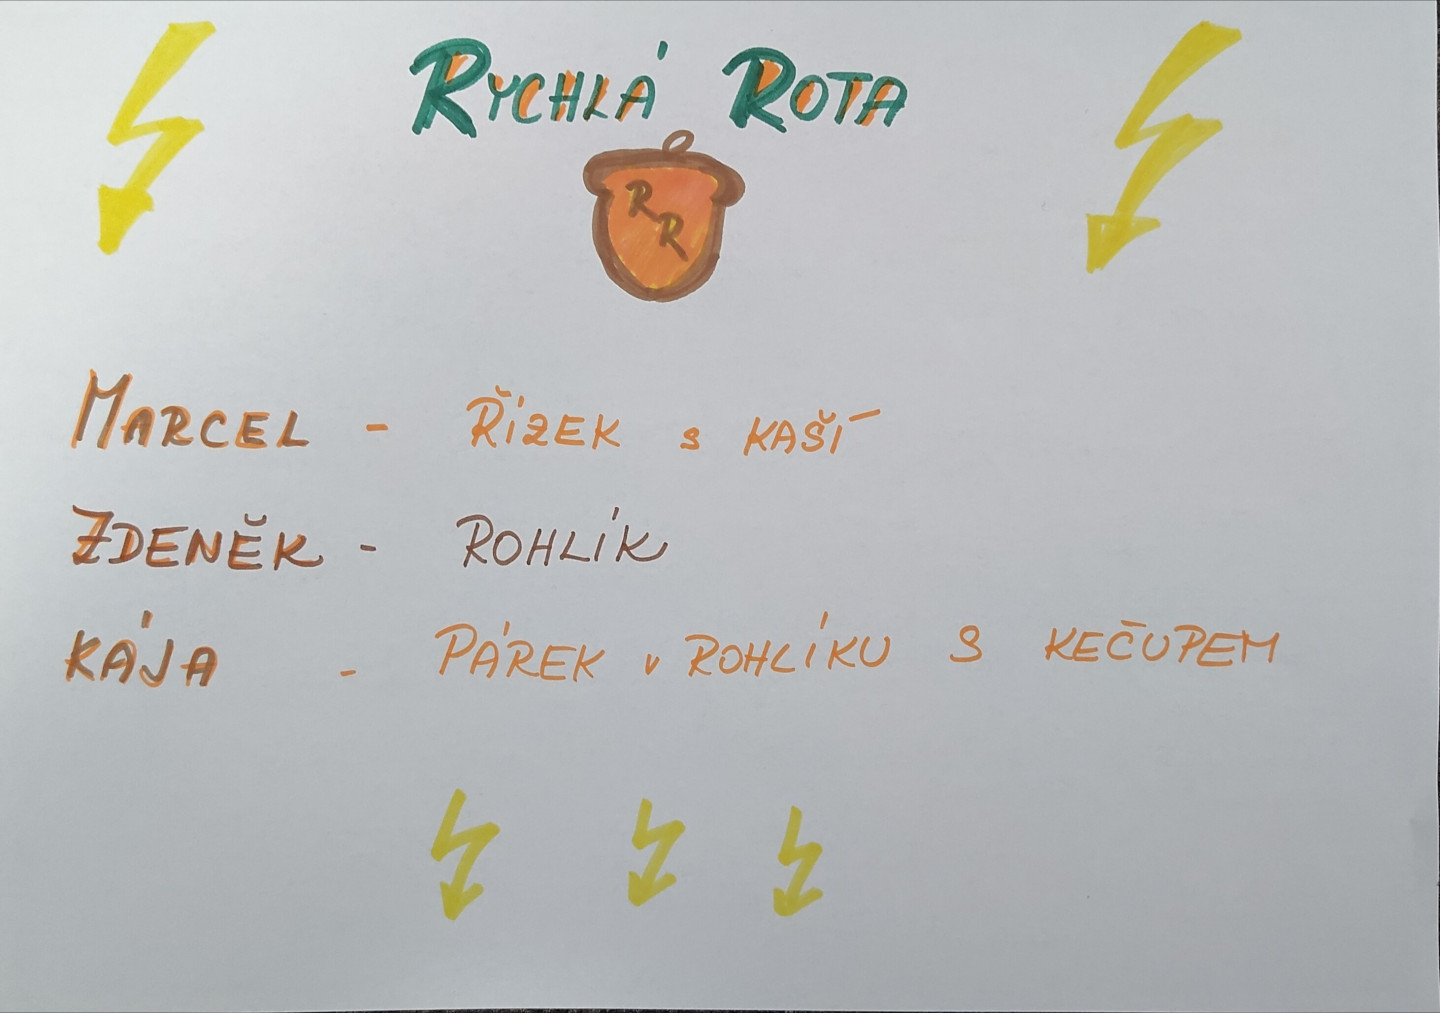 RYCHLÁ ROTA
R
R
MARCEL - ŘÍZEK s KAŠÍ
ZDENĚK - ROHLÍK
KÁJA - PÁREK v ROHLÍKU S KEČUPEM